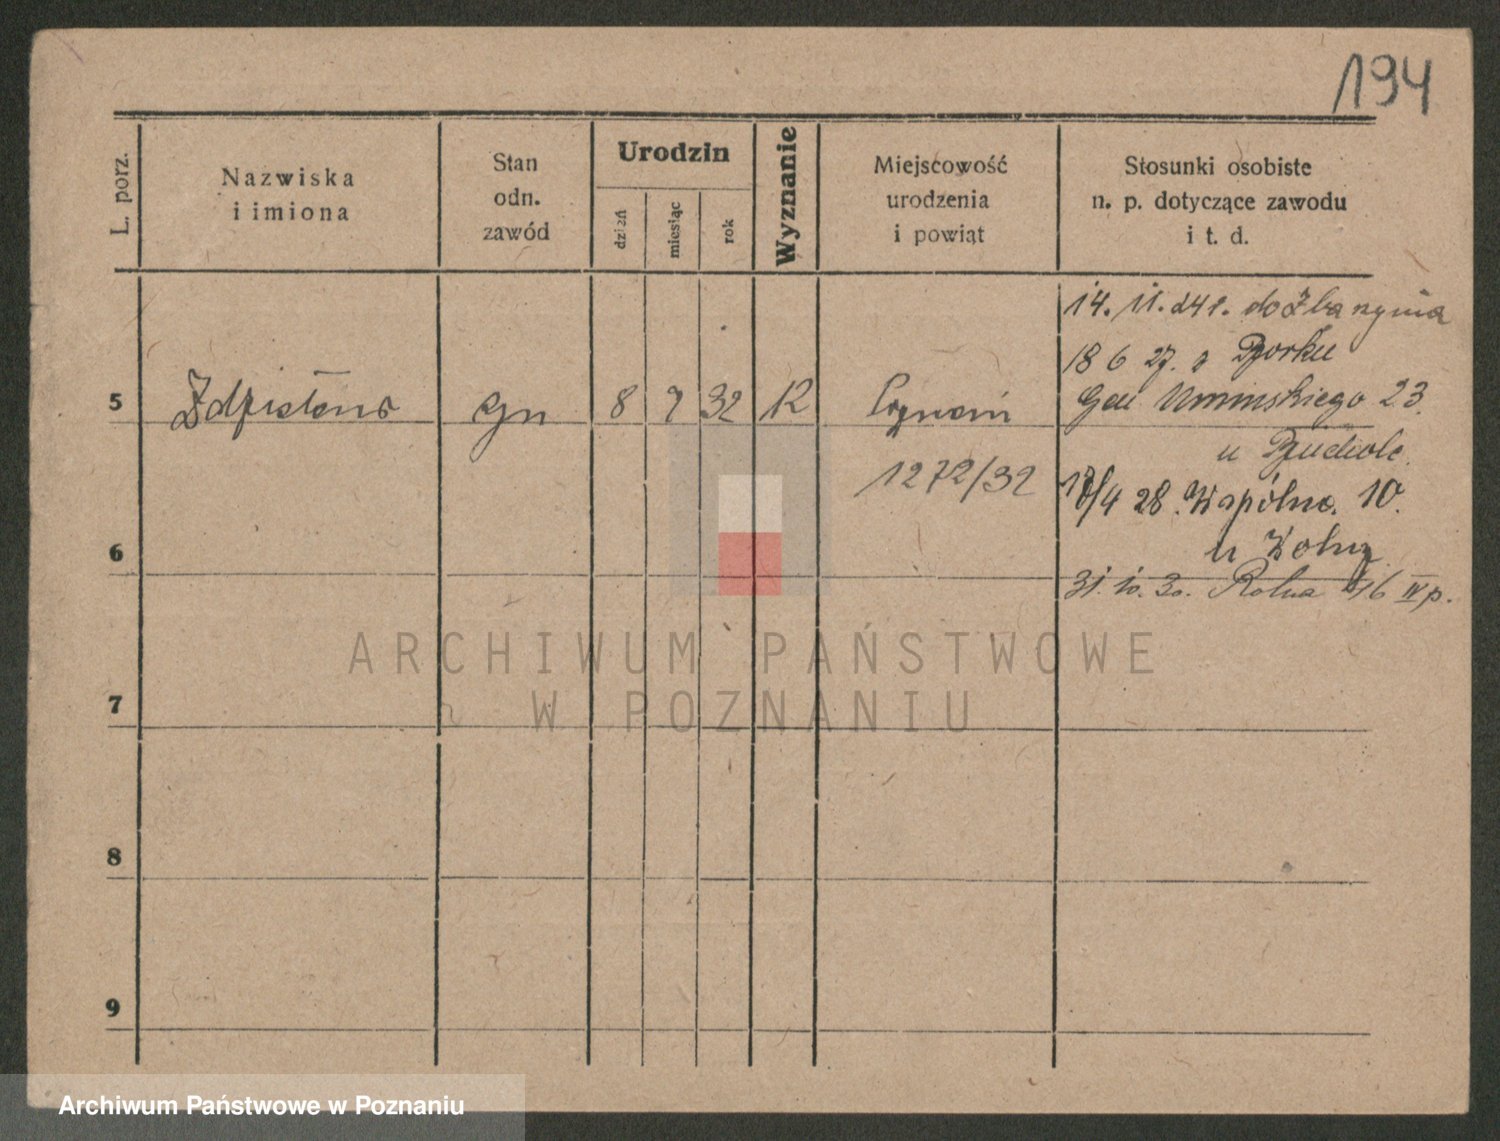 194
L. porz.
Nazwiska
i imiona
Stan
odn.
zawód
Urodzin
dzień
miesiąc
rok
Wyznanie
Miejscowość
urodzenia
i powiąt
Stosunki osobiste
n. p. dotyczące zawodu
i t. d.
14. 11. 24 r. do Zbąszynia
18 6 27. z Borku
5 Zdzisława gn 8 7 32 K Poznań
Gen Umińskiego 23.
u
1272/32
/4 28. Wspólna. 10.
u
6
31. 10. 30. Rolna 16 IV p.
ARCHIWUM PAŃSTWOWE
W POZNANIU
7
8
9
Archiwum Państwowe w Poznaniu